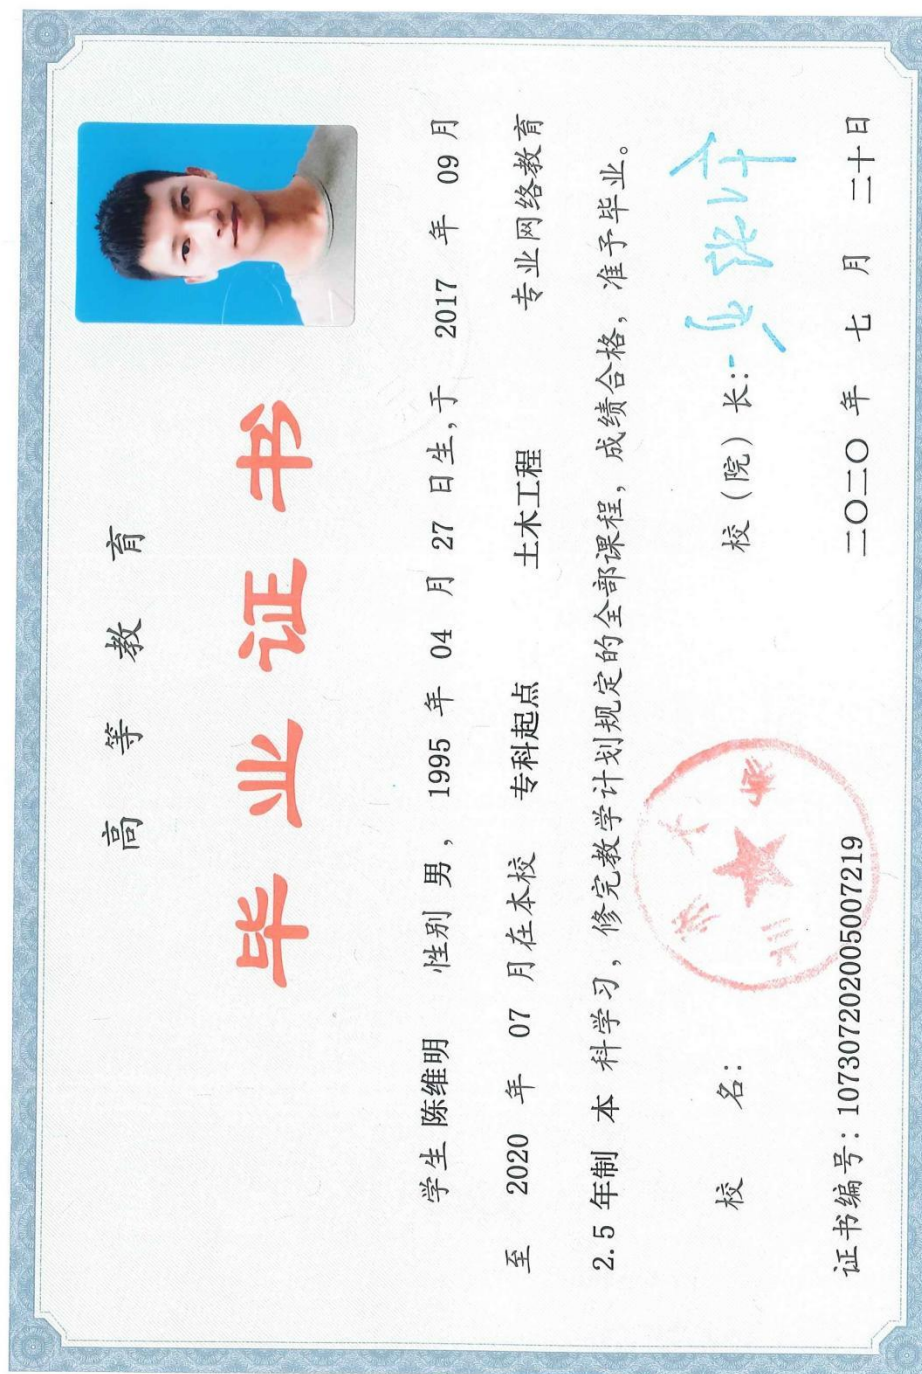 高等教育
毕业证书
学生 陈维明 性别 男， 1995 年 04 月 27 日生，于 2017 年 09 月
至 2020 年 07 月在本校 专科起点 土木工程 专业网络教育
2.5 年制 本 科学习，修完教学计划规定的全部课程，成绩合格，准予毕业。
校 名： 校（院）长：
兰州大学
证书编号：107307202005007219 二〇二〇 年 七 月 二十日